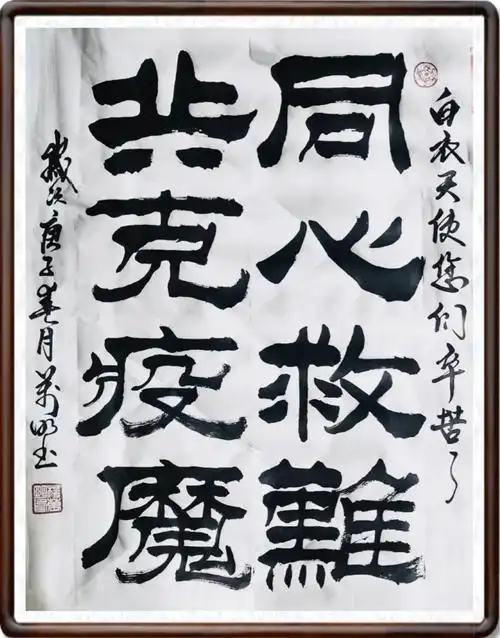 白衣天使您们辛苦了
同心救難
共克疫魔
歲次庚子春月萬明书